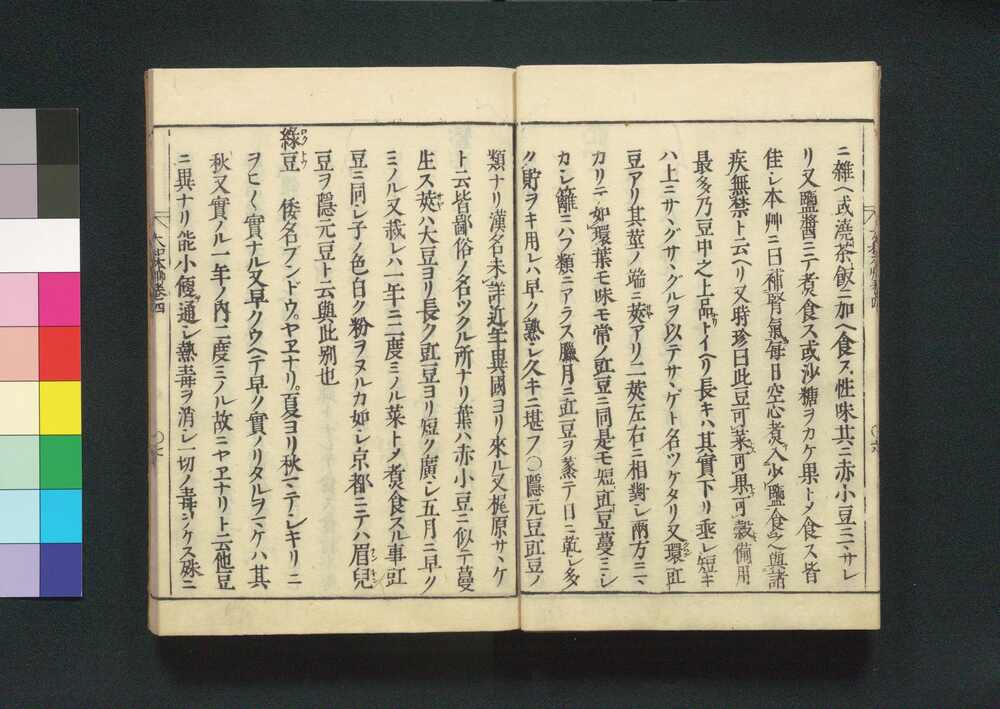 ニ雜ヘ或澆茶飯ニ加ヘ食ス性味共ニ赤小豆ニマサレ
リ又鹽醬ニテ煮食ス或沙糖ヲカケ果トメ食ス皆
佳シ本艸ニ曰補腎氣每日空心煮入少鹽食之與諸
疾無禁ト云ヘリ又時珍曰此豆可菜可果可穀備用
最多乃豆中之上品トイヘリ長キハ其實下リ垂レ短キ
ハ上ニサヽグサヽグルヲ以テサヽゲト名ツケタリ又環豇
豆アリ其莖ノ端ニ莢アリ二莢左右ニ相對シ兩方ニマ
カリテ如環葉モ味モ常ノ豇豆ニ同是モ短豇豆蔓ミシ
カシ籬ニハフ類ニアラス臘月ニ豇豆ヲ蒸テ日ニ乾シ多
ク貯ヲキ用レハ早ク熟シ久キニ堪フ〇隱元豆豇豆ノ
類ナリ漢名未詳近年異國ヨリ來ル又梶原サヽケ
ト云皆鄙俗ノ名ツクル所ナリ葉ハ赤小豆ニ似テ蔓
生ス莢ハ大豆ヨリ長ク豇豆ヨリ短ク廣シ五月ニ早ク
ミノル又栽レハ一年ニ二度ミノル菜トメ煮食スル事豇
豆ニ同シ子ノ色白ク粉ヲヌルカ如シ京都ニテハ眉兒
豆ヲ隱元豆ト云與此别也
綠豆 倭名ブンドウ。ヤヱナリ。夏ヨリ秋マテシキリニ
ヲヒ〱實ナル又早クウヘテ早ク實ノリタルヲマケハ其
秋又實ノル一年ノ内二度ミノル故ニヤヱナリト云他豆
ニ異ナリ能小便通シ熱毒ヲ消シ一切ノ毒ヲケス殊ニ
大和本艸卷四